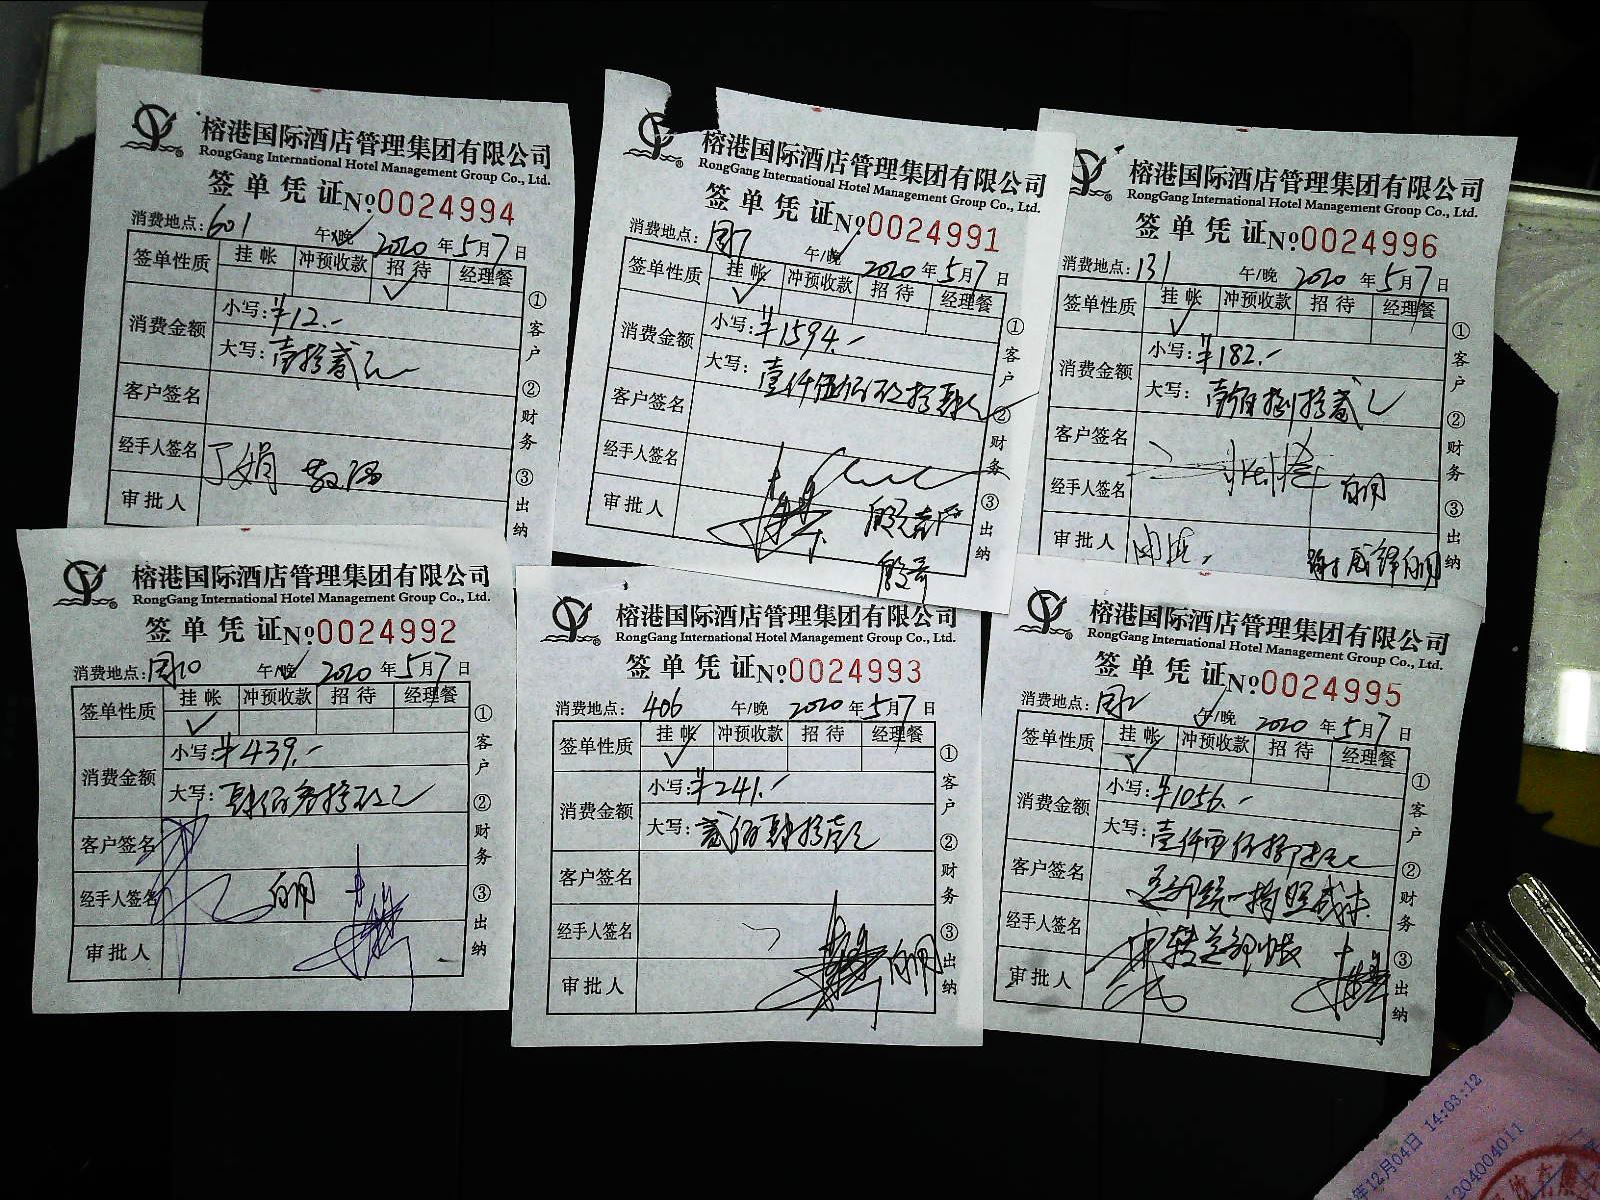 榕港国际酒店管理集团有限公司
RongGang International Hotel Management Group Co., Ltd.
签单凭证 №0024994
消费地点: 601 午/晚 2020 年 5 月 7 日
签单性质 挂帐 冲预收款 招待 经理餐
消费金额 小写: ¥12.-
大写: 壹拾贰元
客户签名
经手人签名 丁娟
审批人
①客户 ②财务 ③出纳
榕港国际酒店管理集团有限公司
RongGang International Hotel Management Group Co., Ltd.
签单凭证 №0024991
消费地点: 午/晚 2020 年 5 月 7 日
签单性质 挂帐 冲预收款 招待 经理餐
消费金额 小写: ¥1594.-
大写: 壹仟伍佰玖拾肆元
客户签名
经手人签名
审批人
①客户 ②财务 ③出纳
榕港国际酒店管理集团有限公司
RongGang International Hotel Management Group Co., Ltd.
签单凭证 №0024996
消费地点: 131 午/晚 2020 年 5 月 7 日
签单性质 挂帐 冲预收款 招待 经理餐
消费金额 小写: ¥182.-
大写: 壹佰捌拾贰元
客户签名
经手人签名
审批人
①客户 ②财务 ③出纳
榕港国际酒店管理集团有限公司
RongGang International Hotel Management Group Co., Ltd.
签单凭证 №0024992
消费地点: 午/晚 2020 年 5 月 7 日
签单性质 挂帐 冲预收款 招待 经理餐
消费金额 小写: ¥439.-
大写: 肆佰叁拾玖元
客户签名
经手人签名
审批人
①客户 ②财务 ③出纳
榕港国际酒店管理集团有限公司
RongGang International Hotel Management Group Co., Ltd.
签单凭证 №0024993
消费地点: 406 午/晚 2020 年 5 月 7 日
签单性质 挂帐 冲预收款 招待 经理餐
消费金额 小写: ¥241.-
大写: 贰佰肆拾壹元
客户签名
经手人签名
审批人
①客户 ②财务 ③出纳
榕港国际酒店管理集团有限公司
RongGang International Hotel Management Group Co., Ltd.
签单凭证 №0024995
消费地点: 午/晚 2020 年 5 月 7 日
签单性质 挂帐 冲预收款 招待 经理餐
消费金额 小写: ¥1056.-
大写: 壹仟零伍拾陆元
客户签名
经手人签名 转总部帐
审批人
①客户 ②财务 ③出纳
年12月04日 14:03:12
1204004011